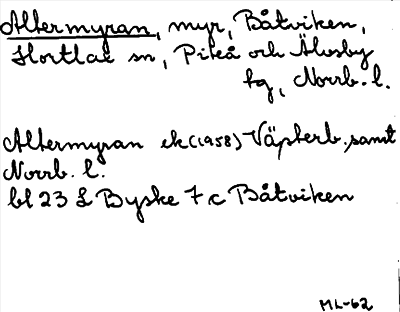 Altermyran, myr, Båtviken,
Hortlax sn, Piteå och Älvsby
tg, Norrb. l.
Altermyran ek (1958) Västerb. samt
Norrb. l.
bl 23 L Byske 7 c Båtviken
ML-62